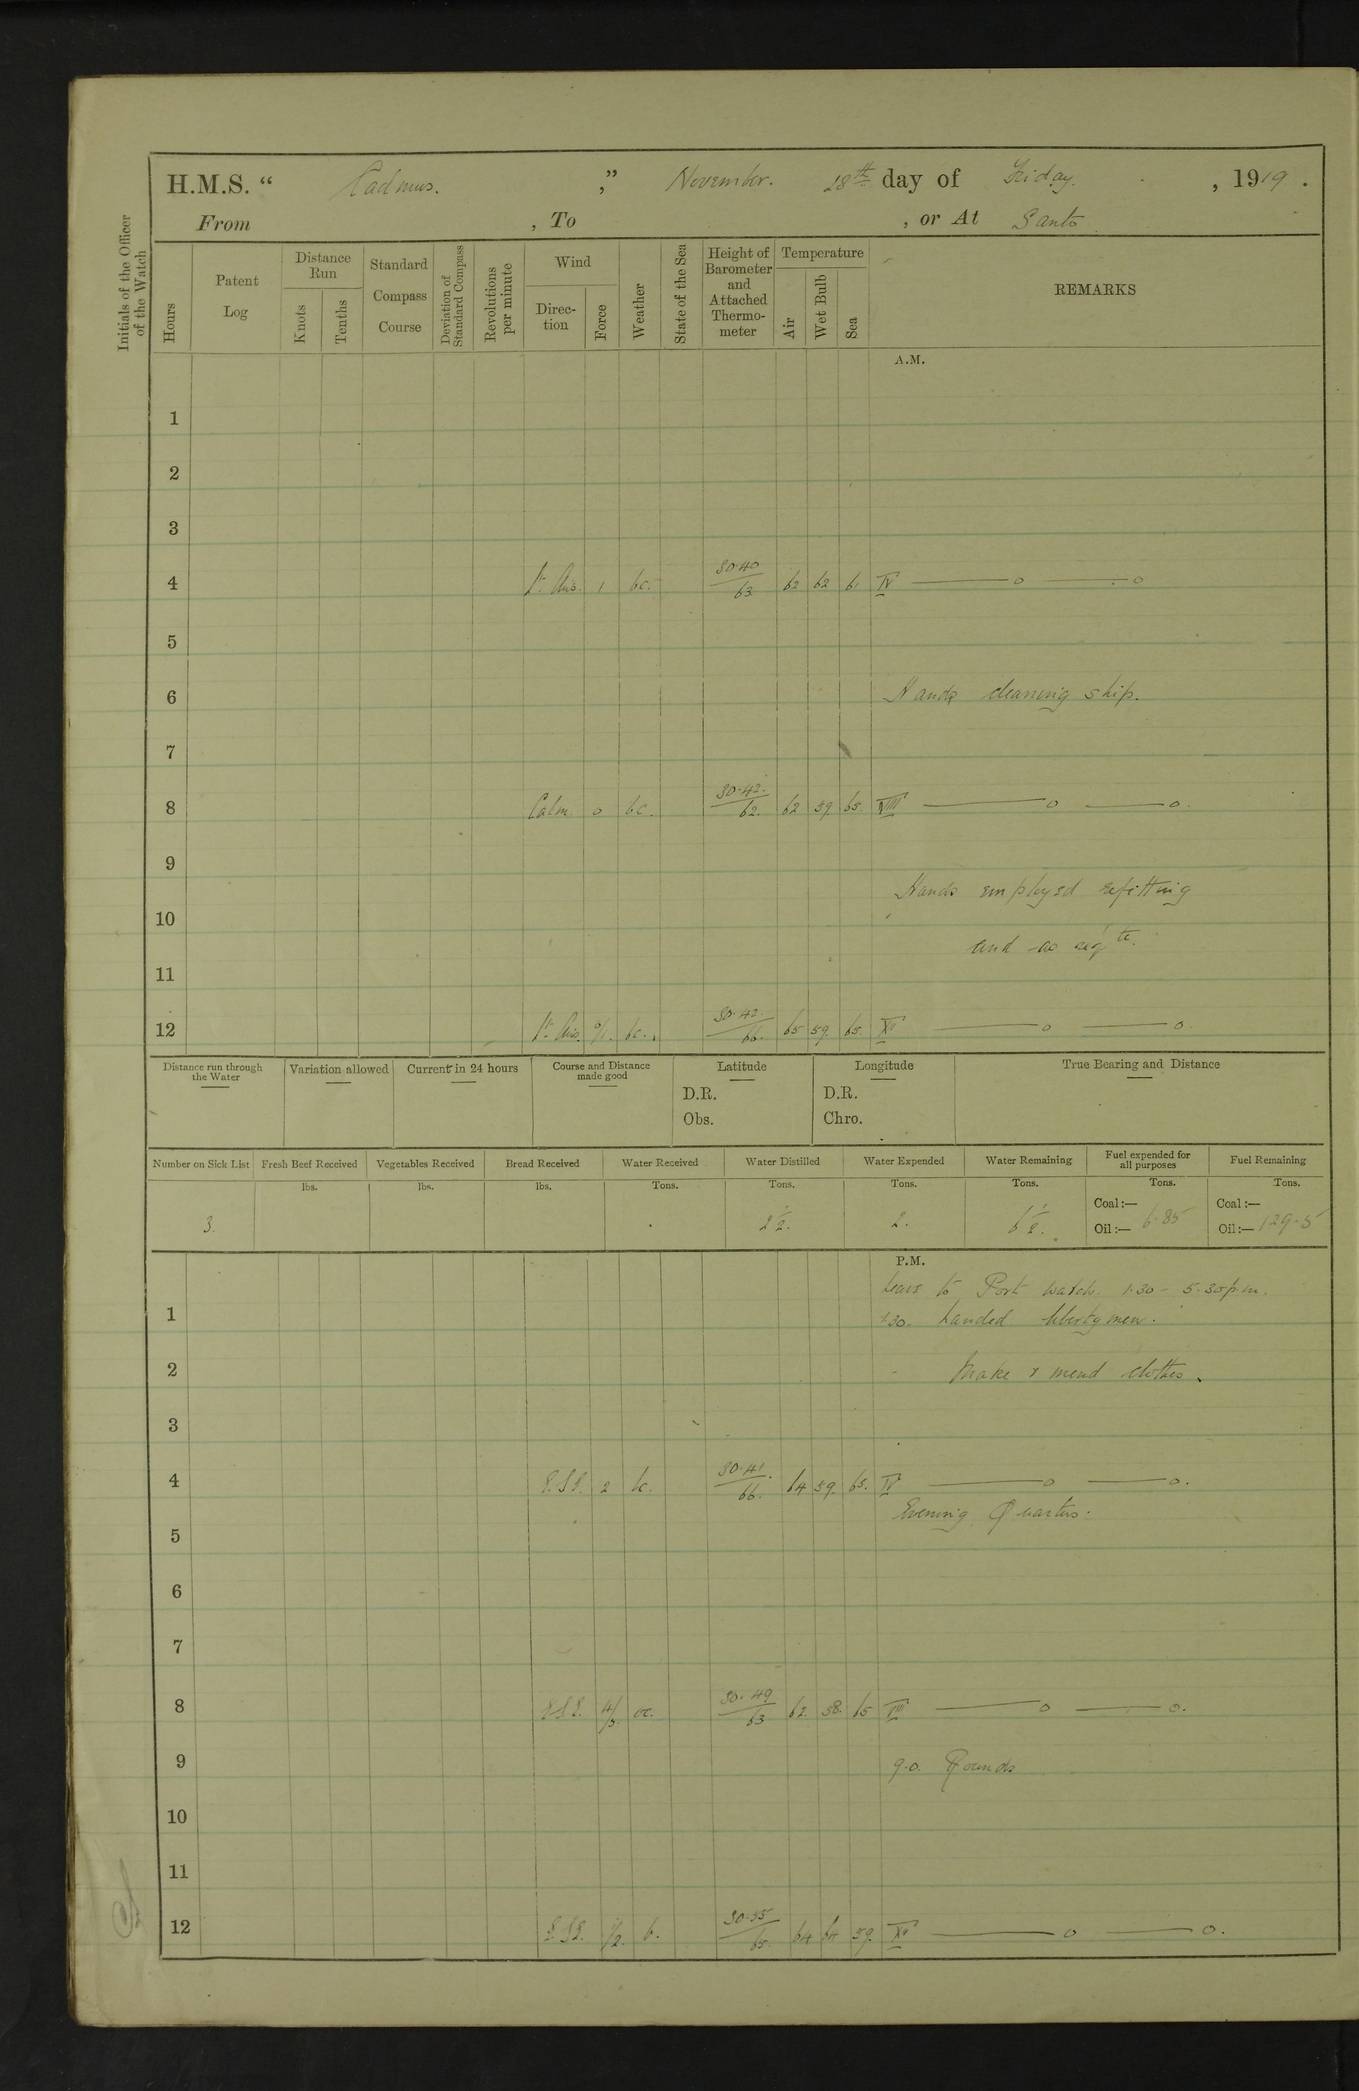 H.M.S. “ Cadmus. ,” November. 28th day of Friday. , 1919.
From , To , or At Santo
Initials of the Officer of the Watch
Hours
Patent Log
Distance Run
Knots
Tenths
Standard Compass Course
Deviation of Standard Compass
Revolutions per minute
Wind
Direction
Force
Weather
State of the Sea
Height of Barometer and Attached Thermometer
Temperature
Air
Wet Bulb
Sea
REMARKS
A.M.
1
2
3
4 Lt. Airs. 1 bc. 30.40 63 62 62 61 IV —— o —— o
5
6 Hands cleaning ship.
7
8 Calm 0 bc. 30.42. 62. 62 59. 65. VIII —— o —— o.
9
Hands employed refitting
10
and as reqte.
11
12 Lt. Airs. 0/1. bc. 30.42. 66. 65 59. 65. XII —— o —— o.
Distance run through the Water
Variation allowed
Current in 24 hours
Course and Distance made good
Latitude
D.R.
Obs.
Longitude
D.R.
Chro.
True Bearing and Distance
Number on Sick List
Fresh Beef Received
Vegetables Received
Bread Received
Water Received
Water Distilled
Water Expended
Water Remaining
Fuel expended for all purposes
Fuel Remaining
lbs. lbs. lbs. Tons. Tons. Tons. Tons. Tons. Tons.
3. 2 1/2. 2. 6 1/2.
Coal:— Coal:—
Oil:— 6.85 Oil:— 129.5
P.M.
Leave to Port watch. 1.30 – 5.30 p.m.
1 1.30. Landed libertymen.
2 Make & mend clothes.
3
4 E.S.E. 2 bc. 30.41. 66. 64 59. 65. IV —— o —— o.
Evening Quarters.
5
6
7
8 E.S.E. 4/3. oc. 30.49 63 62. 58. 65 VIII —— o —— o.
9 9.0. Rounds
10
11
12 E.S.E. 1/2. b. 30.55 65. 64 64 59. XII —— o —— o.